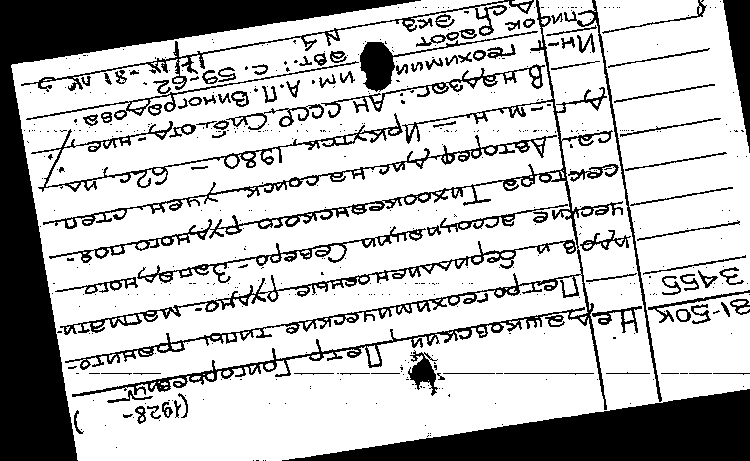 81-50к
3455
Недашковский Петр Григорьевич
(1928- )
Петрогеохимические типы гранито-
идов и бериллиеносные рудно-магмати-
ческие ассоциации Северо-Западного
сектора Тихоокеанского рудного поя-
са: Автореф. дис. на соиск. учен. степ.
д. г.-м. н. — Иркутск, 1980. — 62 с., ил.
В надзаг.: АН СССР, Сиб. отд-ние,
Ин-т геохимии им. А.П. Виноградова.
Список работ авт.: с. 59-62.